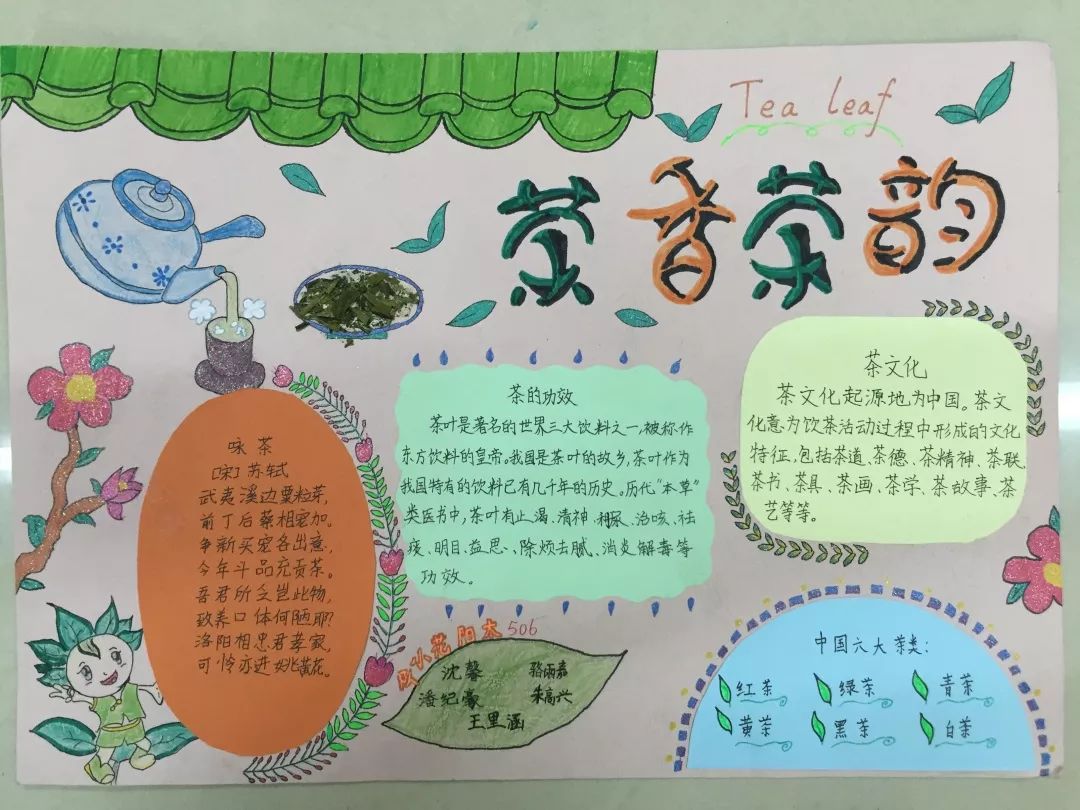 Tea leaf
茶香茶韵
茶文化
茶文化起源地为中国。茶文
化意为饮茶活动过程中形成的文化
特征,包括茶道、茶德、茶精神、茶联、
茶书、茶具、茶画、茶学、茶故事、茶
艺等等。
茶的功效
茶叶是著名的世界三大饮料之一,被称作
东方饮料的皇帝。我国是茶叶的故乡,茶叶作为
我国特有的饮料已有几千年的历史。历代"本草"
类医书中,茶叶有止渴、清神、利尿、治咳、祛
痰、明目、益思、除烦去腻、消炎解毒等
功效。
咏茶
[宋]苏轼
武夷溪边粟粒芽,
前丁后蔡相宠加。
争新买宠各出意,
今年斗品充贡茶。
吾君所乏岂此物,
致养口体何陋耶?
洛阳相忠君孝家,
可怜亦进姚黄花。
506
沈馨
骆雨嘉
潘纪豪
朱高兴
王里涵
中国六大茶类:
红茶 绿茶 青茶
黄茶 黑茶 白茶